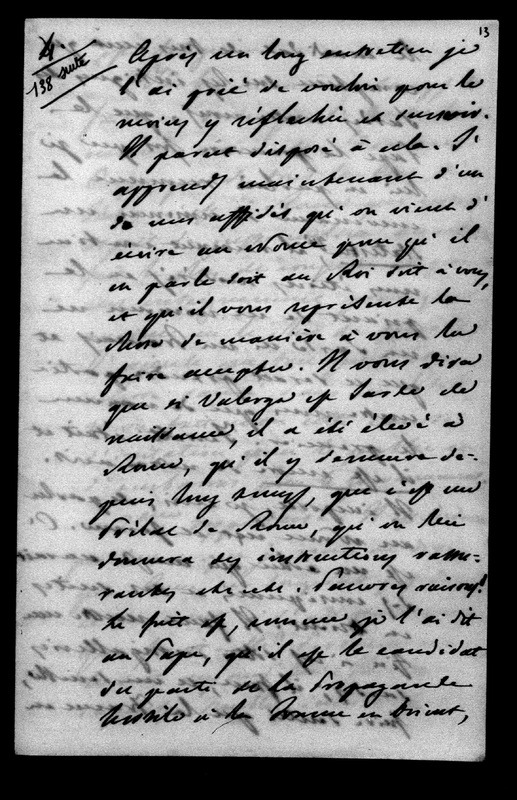 13
4.
138 suite
Après un long entretien je
l'ai prié de vouloir pour le
moins y réfléchir et surseoir.
Il parut disposé à cela. J'
apprends maintenant d'un
de mes affidés qu'on vient d'
écrire au Nonce pour qu'il
en parle soit au Roi soit à vous,
et qu'il vous représente la
chose de manière à vous la
faire accepter. Il vous dira
que si Valerga est Sarde de
naissance, il a été élevé à
Rome, qu'il y demeure de-
puis longtemps, que c'est un
Prélat de Rome, qu'on lui
donnera des instructions rassu-
rantes etc. etc. Pauvres raisons!
Le fait est, comme je l'ai dit
au Pape, qu'il est le candidat
du parti de la Propagande
hostile à la France en Orient,